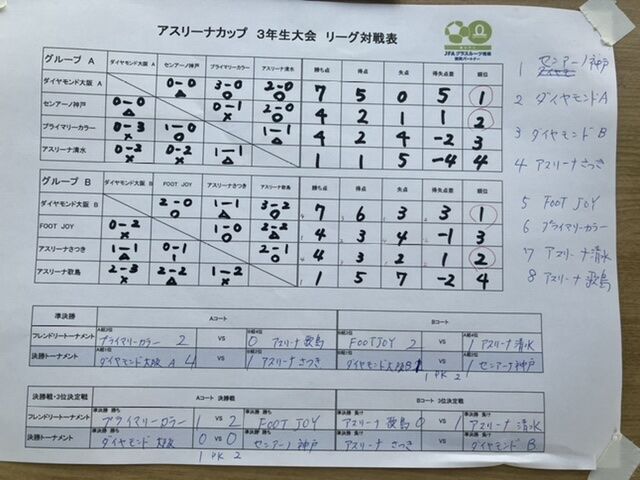 アスリーナカップ 3年生大会 リーグ対戦表
JFAグラスルーツ推進
賛同パートナー
グループ A ダイヤモンド大阪 A センアーノ神戸 プライマリーカラー アスリーナ清水 勝ち点 得点 失点 得失点差 順位
ダイヤモンド大阪 A 0-0 △ 3-0 ○ 2-0 ○ 7 5 0 5 1
センアーノ神戸 0-0 △ 0-1 × 2-0 ○ 4 2 1 1 2
プライマリーカラー 0-3 × 1-0 ○ 1-1 △ 4 2 4 -2 3
アスリーナ清水 0-2 × 0-2 × 1-1 △ 1 1 5 -4 4
グループ B ダイヤモンド大阪 B FOOT JOY アスリーナさつき アスリーナ歌島 勝ち点 得点 失点 得失点差 順位
ダイヤモンド大阪 B 2-0 ○ 1-1 △ 3-2 ○ 7 6 3 3 1
FOOT JOY 0-2 × 1-0 ○ 2-2 △ 4 3 4 -1 3
アスリーナさつき 1-1 △ 0-1 2-1 ○ 4 3 1 2
アスリーナ歌島 2-3 × 2-2 △ 1-2 × 1 5 7 -2 4
1 センアーノ神戸
2 ダイヤモンドA
3 ダイヤモンドB
4 アスリーナさつき
5 FOOT JOY
6 プライマリーカラー
7 アスリーナ清水
8 アスリーナ歌島
準決勝 Aコート Bコート
フレンドリートーナメント プライマリーカラー 2 VS 0 アスリーナ歌島 FOOTJOY 2 VS 1 アスリーナ清水
決勝トーナメント ダイヤモンド大阪 A 4 VS 1 アスリーナさつき ダイヤモンド大阪B 1 VS 1 センアーノ神戸
1 PK 2
決勝戦・3位決定戦 Aコート 決勝戦 Bコート 3位決定戦
フレンドリートーナメント 準決勝 勝ち プライマリーカラー 1 VS 2 準決勝 勝ち FOOT JOY 準決勝 負け アスリーナ歌島 0 VS 1 準決勝 負け アスリーナ清水
決勝トーナメント 準決勝 勝ち ダイヤモンド大阪 0 VS 0 準決勝 勝ち センアーノ神戸 準決勝 負け アスリーナさつき VS 準決勝 負け ダイヤモンド B
1 PK 2